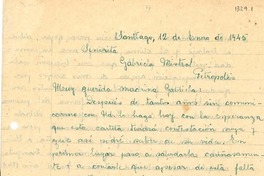 Santiago, 12 de Enero de 1945
Señorita
Gabriela Mistral
Petropolis
Muy querida madrina Gabriela:
Después de tantos años sin comuni-
carme con Ud lo hago hoy con la esperanza
que esta cartita tendrá contestación suya y
que así podré saber de su vida. En
primer lugar para a saludarla cariñosamen-
te y a contarle que apesar de esta falta